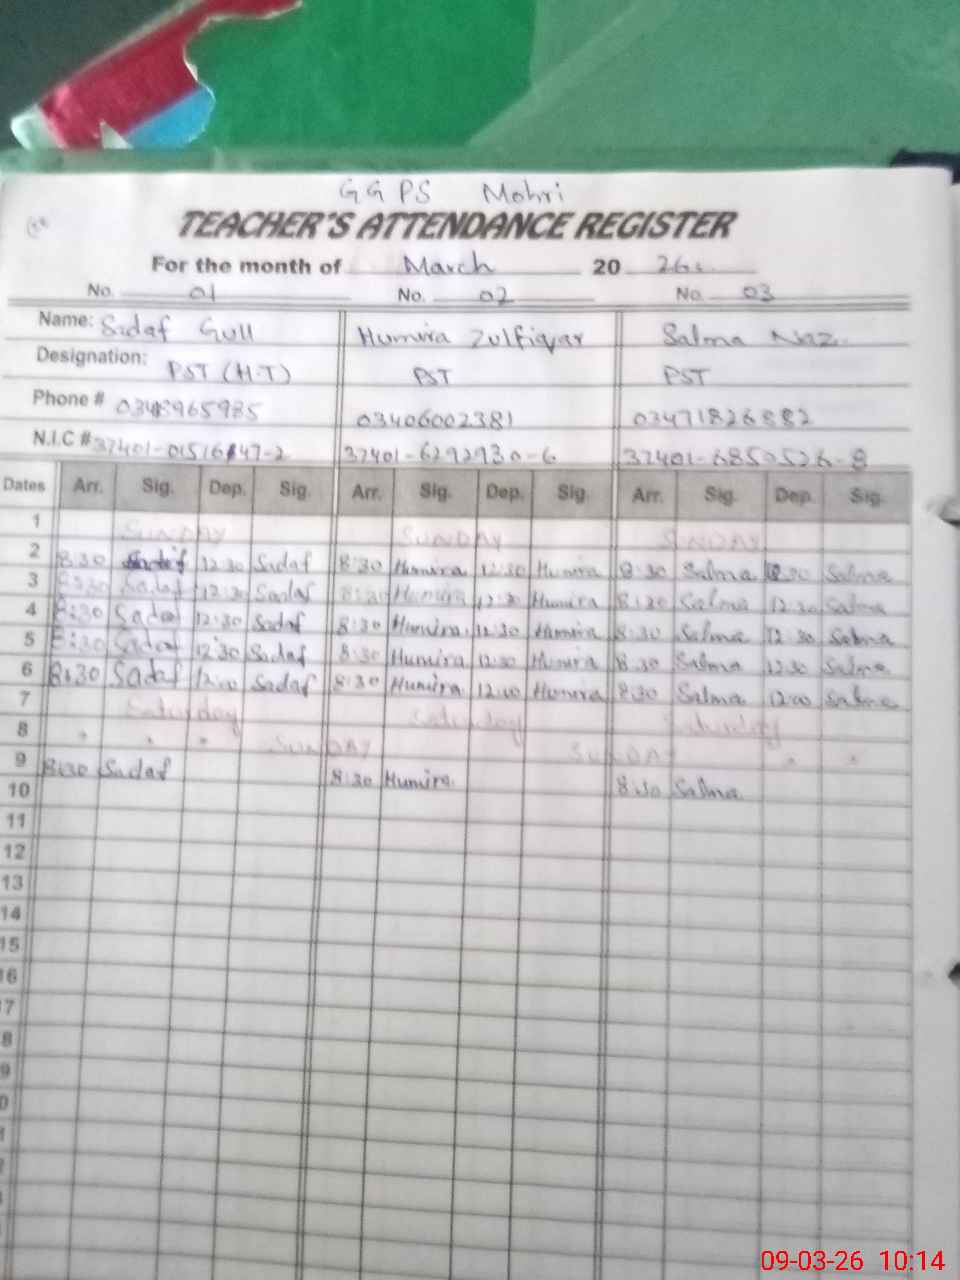 GGPS Mohri
TEACHER'S ATTENDANCE REGISTER
For the month of March 20 26
No. 01 No. 02 No. 03
Name: Sadaf Gull Humira Zulfiqar Salma Niaz
Designation: PST (H.T) PST PST
Phone # 0348965985 03406002381 03471826882
N.I.C # 37401-6292930-6 37401-6850526-8
Dates Arr. Sig. Dep. Sig. Arr. Sig. Dep. Sig. Arr. Sig. Dep. Sig.
1 SUNDAY SUNDAY SUNDAY
2 8:30 Sadaf 12:30 Sadaf 8:30 Humira 12:30 Humira 8:30 Salma Salma
3 8:30 Sadaf 12:30 Sadaf 8:30 Humira 12:30 Humira 8:30 Salma 12:30 Salma
4 8:30 Sadaf 12:30 Sadaf 8:30 Humira 12:30 Humira 8:30 Salma 12:30 Salma
5 8:30 Sadaf 12:30 Sadaf 8:30 Humira 12:30 Humira 8:30 Salma 12:30 Salma
6 8:30 Sadaf 12:00 Sadaf 8:30 Humira 12:00 Humira 8:30 Salma 12:00 Salma
7 Saturday Saturday Saturday
8 SUNDAY SUNDAY
9 8:30 Sadaf 8:30 Humira 8:30 Salma
10
11
12
13
14
15
16
17
8
9
0
09-03-26 10:14